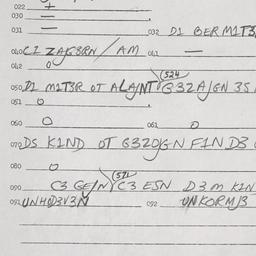 022
030 —
031 — 032 D1 BERM1T3
040 C1 ZAGSRN / AM 041 —
042 0
(524
050 D1 M1T3R OT ALAJNT G32AJGN 3S
051 0
060 0 061 0
070 DS K1ND OT G32OJGN F1ND3
080 0
(521
090 C3 GEJN C3 ESN D3M K1N
091 UNHOB3V3N 092 UNKORM/3